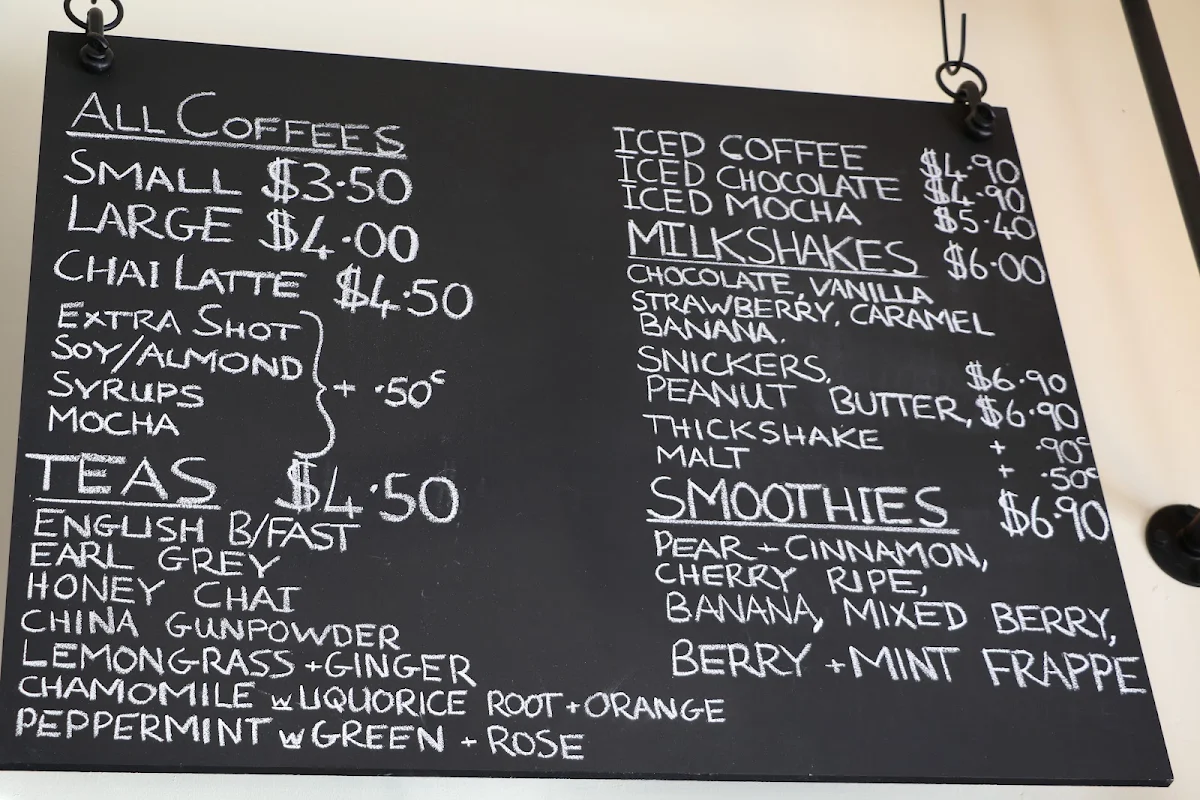 ALL COFFEES
SMALL $3.50
LARGE $4.00
CHAI LATTE $4.50
EXTRA SHOT
SOY/ALMOND
SYRUPS
MOCHA
+ .50c
TEAS $4.50
ENGLISH B/FAST
EARL GREY
HONEY CHAI
CHINA GUNPOWDER
LEMONGRASS + GINGER
CHAMOMILE w LIQUORICE ROOT + ORANGE
PEPPERMINT w GREEN + ROSE
ICED COFFEE $4.90
ICED CHOCOLATE $4.90
ICED MOCHA $5.40
MILKSHAKES $6.00
CHOCOLATE, VANILLA
STRAWBERRY, CARAMEL
BANANA.
SNICKERS, $6.90
PEANUT BUTTER, $6.90
THICKSHAKE + .90c
MALT + .50c
SMOOTHIES $6.90
PEAR + CINNAMON,
CHERRY RIPE,
BANANA, MIXED BERRY,
BERRY + MINT FRAPPE